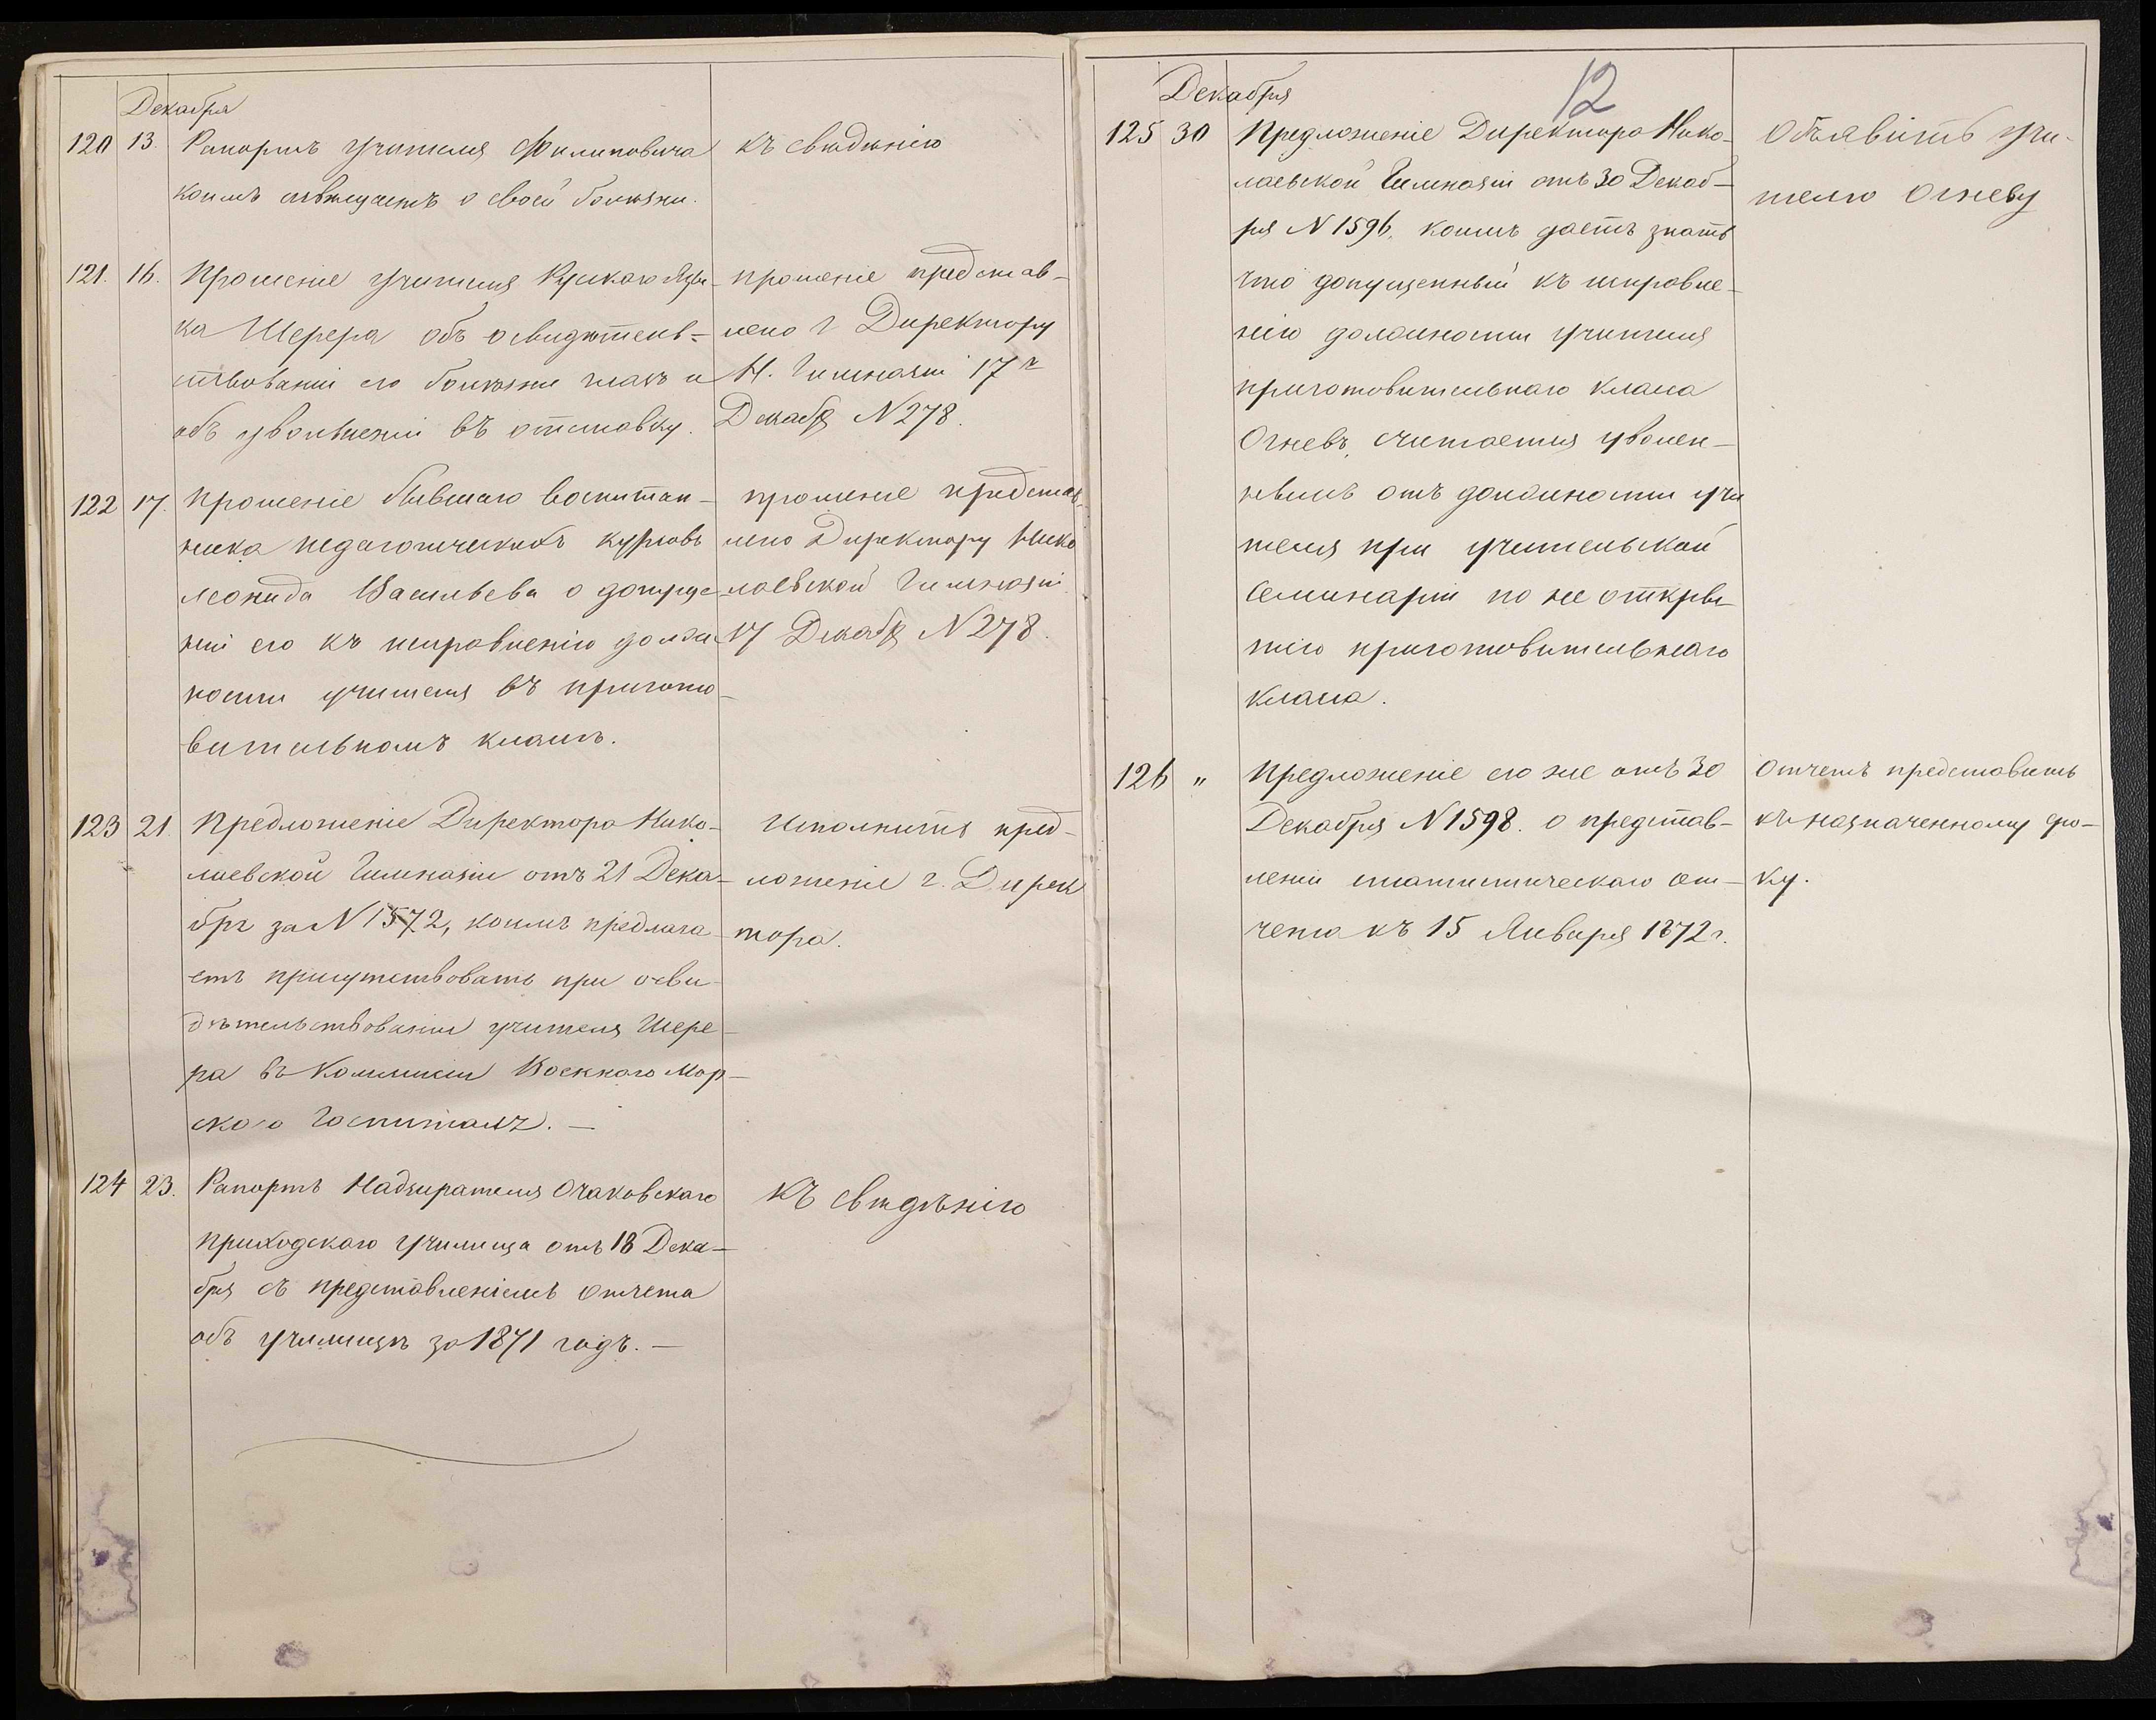 Декабря
120 13. Рапортъ учителя Филиповича
коимъ извѣщаетъ о своей болѣзни.
къ свѣдѣнію
121. 16. Прошеніе учителя Рускаго Язы-
ка Шерера объ освидѣтель-
ствованіи его болѣзни глазъ и
объ увольненіи въ отставку.
прошеніе представ-
лено г Директору
Н. Гимназіи 17 г
Декабр N 278.
122 17. Прошеніе бывшаго воспитан-
ника педагогическихъ курсовъ
Леонида Васильева о допуще-
ніи его къ исправленію долж
ности учителя въ пригото-
вительномъ классѣ.
прошеніе представ-
лено Директору Нико
лаевской Гимназіи
17 Декабр N 278.
123 21. Предложеніе Директора Нико-
лаевской Гимназіи отъ 21 Дека-
бря за N 1572, коимъ предлага
етъ присутствовать при осви-
дѣтельствованіи учителя Шере-
ра въ Коммисіи Военнаго Мор-
скаго Госпиталя. —
Исполнить пред-
ложеніе г. Дирек
тора.
124 23. Рапортъ Надзирателя Очаковскаго
приходскаго училища отъ 18 Дека-
бря съ представленіемъ отчета
объ училищѣ за 1871 годъ. —
Къ свѣдѣнію
12
Декабря
125 30 Предложеніе Директора Нико-
лаевской Гимназіи отъ 30 Декаб-
ря N 1596, коимъ даетъ знать
что допущенный къ исправле-
нію должности учителя
приготовительнаго класса
Огневъ, считается уволен-
нымъ отъ должности учи
теля при учительской
Семинаріи по не откры-
тію приготовительнаго
класса.
Объявить учи-
телю Огневу
126 " Предложеніе его же отъ 30
Декабря N 1598. о представ-
леніи статистическаго от-
чета къ 15 Января 1872 г.
Отчетъ представить
къ назначенному сро-
ку.